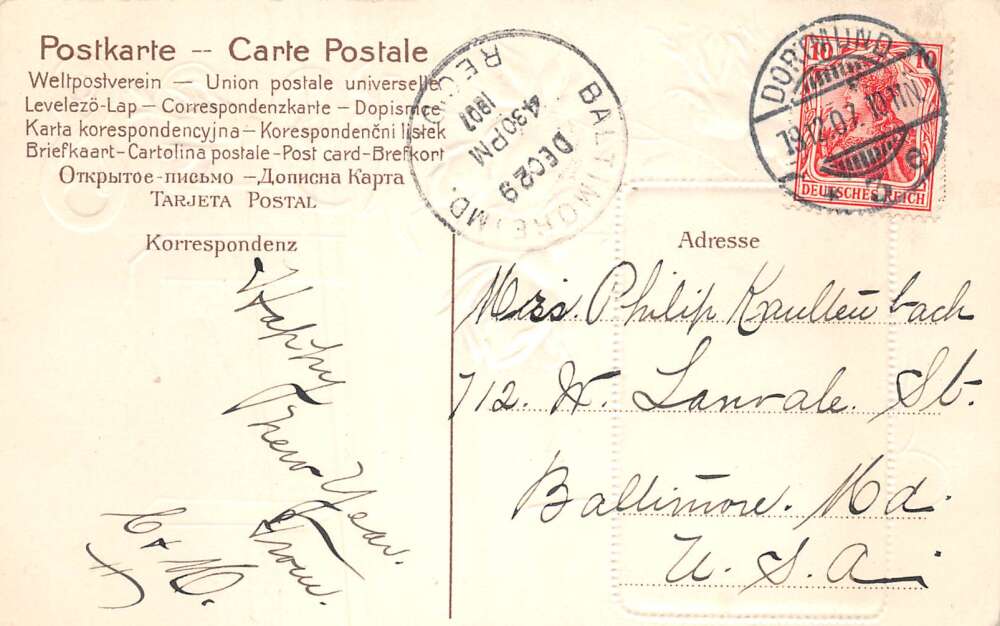 Postkarte -- Carte Postale
Weltpostverein — Union postale universelle
Levelezö-Lap — Correspondenzkarte — Dopisnice
Karta korespondencyjna — Korespondenčni listek
Briefkaart-Cartolina postale-Post card-Brefkort
Открытое-письмо — Дописна Карта
Tarjeta Postal
Korrespondenz
Happy
New Year.
From.
C + M.
BALTIMORE, MD.
REC'D
1907
4:30 PM
DEC 29
DORTMUND
19.12.07. 10-11N.
* 3 e
10 10
DEUTSCHES REICH
Adresse
Miss. Philip Kaultenbach
712. W. Lanvale. St.
Baltimore. Md.
U. S. A.